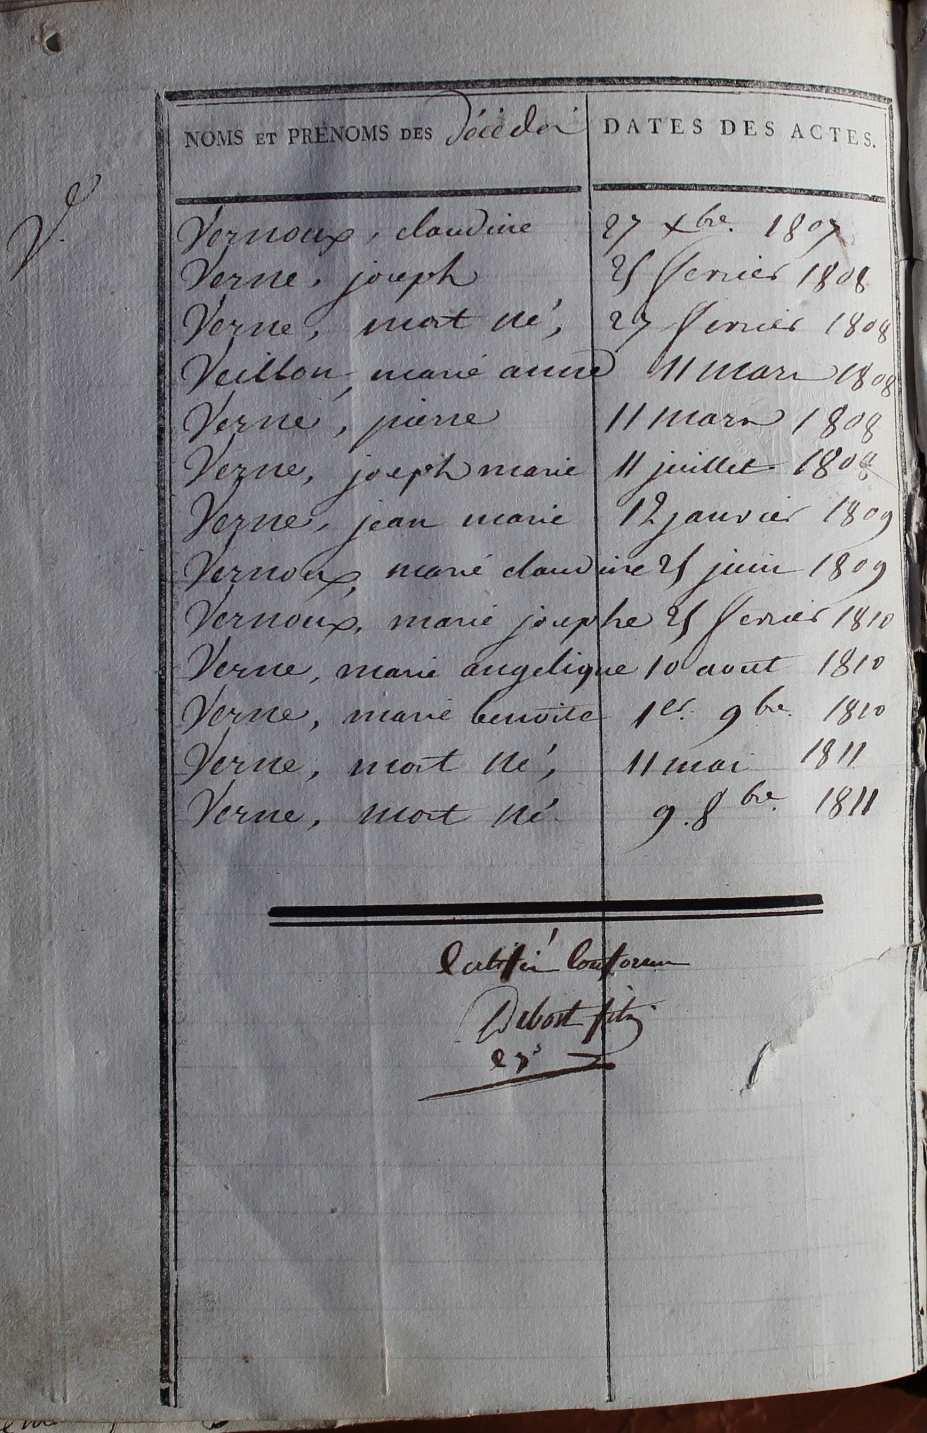 NOMS ET PRÉNOMS DES décédés DATES DES ACTES.
V.
Vernoux, claudine 27 xbre. 1807
Verne, joseph 25 fevrier 1808
Verne, mort né, 27 fevrier 1808
Veillon, marie anne 11 mars 1808
Verne, pierre 11 mars 1808
Verne, joseph marie 11 juillet 1808
Verne, jean marie 12 janvier 1809
Vernoux, marie claudine 25 juin 1809
Vernoux, marie josephe 25 fevrier 1810
Verne, marie angelique 10 aout 1810
Verne, marie benoite 1er. 9bre. 1810
Verne, mort né, 11 mai 1811
Verne, mort né. 9. 8bre. 1811
Certifié Conforme
Debost fils